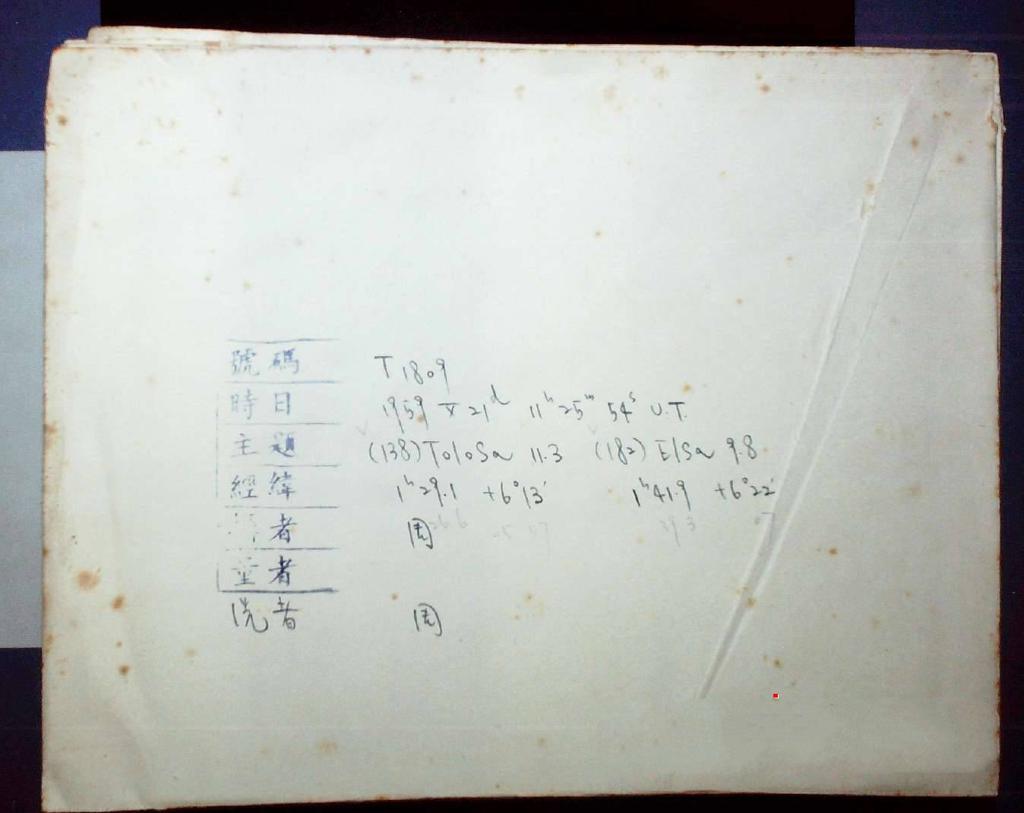 號碼 T 1809
時日 1959 X 21d 11h 25m 54s U.T.
主題 (138) Tolosa 11.3 (182) Elsa 9.8
經緯 1h 29.1 +6°13' 1h 41.9 +6°22'
者 周
者
洗者 周